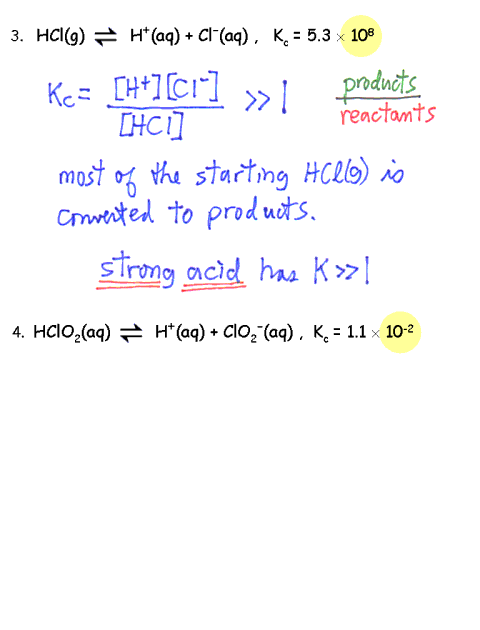 3. HCl(g) ⇌ H⁺(aq) + Cl⁻(aq) , K꜀ = 5.3 × 10⁸
Kc = [H+][Cl-] / [HCl] >> 1 products / reactants
most of the starting HCl(g) is
converted to products.
strong acid has K >> 1
4. HClO₂(aq) ⇌ H⁺(aq) + ClO₂⁻(aq) , K꜀ = 1.1 × 10⁻²